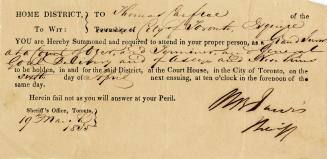 HOME DISTRICT, To Thomas of the
To Wit: Township of City of Toronto, Esquire
YOU are Hereby Summoned and required to attend in your proper person, as a Grand Juror
at a Court of Oyer and Terminer and General
Gaol Delivery and of Assize and Nisi Prius
to be holden, in and for the said District, at the Court House, in the City of Toronto, on the
day of April next ensuing, at ten o'clock in the forenoon of
the same day.
Herein fail not as you will answer at your Peril.
Sheriff's Office, Toronto,
19th March
1835
W B Jarvis
Sheriff